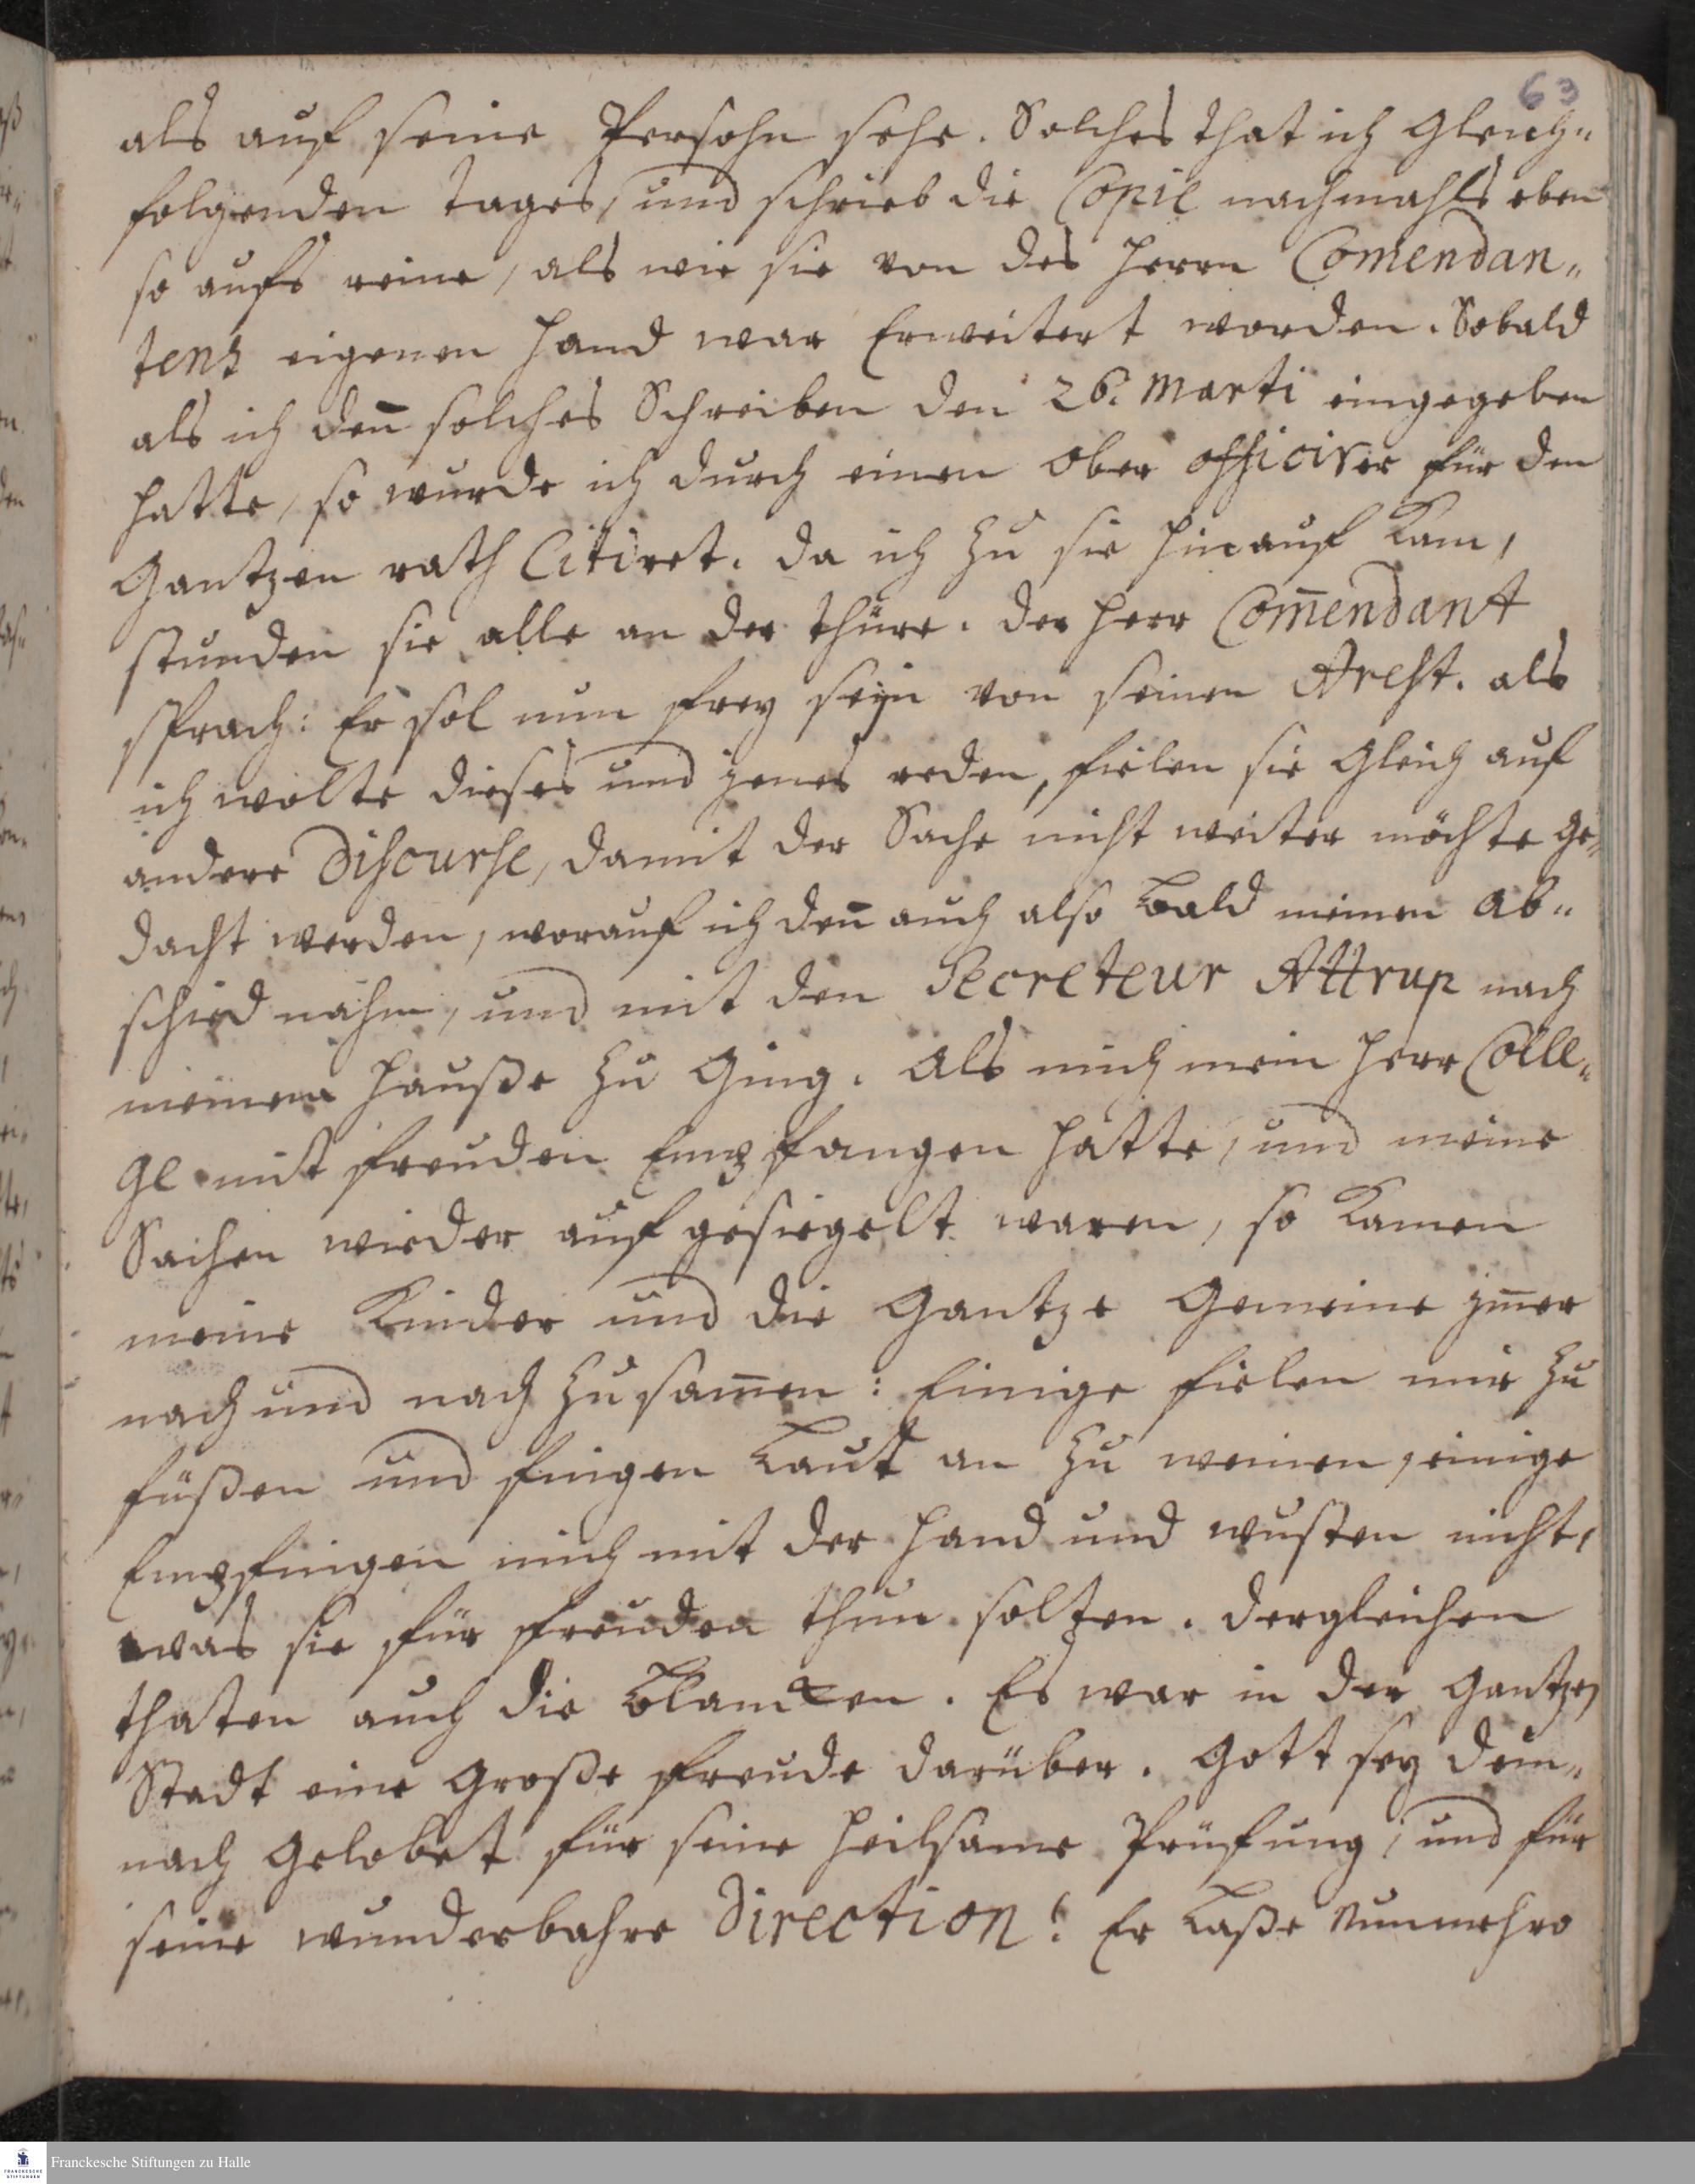 63
als auf seine Persohn sehe. Solches that ich gleich„
folgenden tages, und schrieb die Copie nachmahls eben
so aufs reine, als wie sie von des Herrn Comendan„
tens eigenen Hand war Erweitert worden. Sobald
als ich deñ solches Schreiben den 26. Marti eingegeben
hatte, so wurde ich durch einen Ober officirer für den
Gantzen rath Citiret. da ich zu sie hinauf kam,
stunden sie alle an der thüre. der Herr Com̃endant
sprach: Er sol nun frey seÿn von seinen Arest. als
ich wolte dieses und jenes reden, fielen sie gleich auf
andere Discourse, damit der Sache nicht weiter möchte ge„
dacht werden, worauf ich deñ auch also bald meinen Ab„
schied nahm, und mit den Secreteur Attrup nach
meinem Hauße zu Ging. Als mich mein Herr Colle„
ge mit freuden Empfangen hatte, und meine
Sachen wieder aufgesiegelt waren, so kamen
meine Kinder und die Gantze Gemeine im̃er
nach und nach zusam̃en: Einige fielen mir zu
füßen und fingen Laut an zu weinen, einige
Empfingen mich mit der Hand und wusten nicht,
was sie für freuden thun solten. dergleichen
thaten auch die Blancken. Es war in der Gantzen
Stadt eine Große freude darüber. Gott sey dem„
nach Gelobet für seine heilsame Prüfung, und für
seine wunderbahre Direction! Er Laße Nunmehro
Franckesche Stiftungen zu Halle